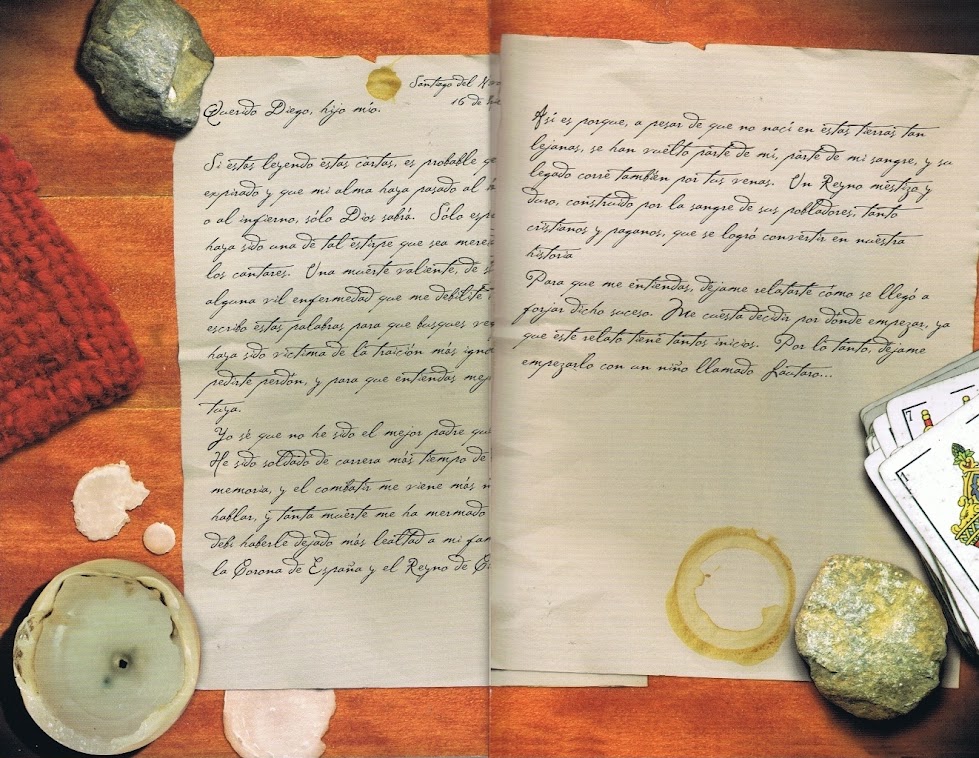 Santiago del
16 de
Querido Diego, hijo mío.
Si estas leyendo estas cartas, es probable
expirado y que mi alma haya pasado al
o al infierno, sólo Dios sabrá. Sólo
haya sido una de tal estirpe que sea
los cantares. Una muerte valiente, de
alguna vil enfermedad que me debilite
escribo estas palabras para que busques
haya sido victima de la traición más
pedirte perdón, y para que entiendas
tuya.
Yo sé que no he sido el mejor padre
He sido soldado de carrera más tiempo de
memoria, y el combatir me viene más
hablar, y tanta muerte me ha mermado
debí haberle dejado más lealtad a mi
la Corona de España y el Reyno de
Así es porque, a pesar de que no nací en estas tierras tan
lejanas, se han vuelto parte de mí, parte de mi sangre, y su
legado corre también por tus venas. Un Reyno mestizo y
duro, construido por la sangre de sus pobladores, tanto
cristianos y paganos, que se logró convertir en nuestra
historia
Para que me entiendas, déjame relatarte cómo se llegó a
forjar dicho suceso. Me cuesta decidir por dónde empezar, ya
que este relato tiene tantos inicios. Por lo tanto, déjame
empezarlo con un niño llamado Lautaro...
7